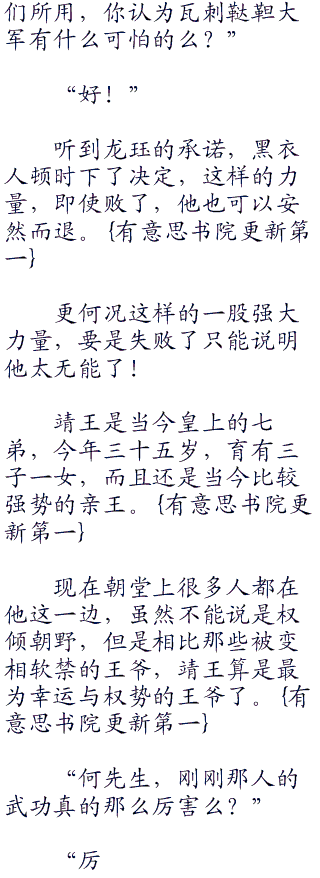 们所用，你认为瓦刺鞑靼大
军有什么可怕的么？”
“好！”
听到龙珏的承诺，黑衣
人顿时下了决定，这样的力
量，即使败了，他也可以安
然而退。{有意思书院更新第
一}
更何况这样的一股强大
力量，要是失败了只能说明
他太无能了！
靖王是当今皇上的七
弟，今年三十五岁，育有三
子一女，而且还是当今比较
强势的亲王。{有意思书院更
新第一}
现在朝堂上很多人都在
他这一边，虽然不能说是权
倾朝野，但是相比那些被变
相软禁的王爷，靖王算是最
为幸运与权势的王爷了。{有
意思书院更新第一}
“何先生，刚刚那人的
武功真的那么厉害么？”
“厉